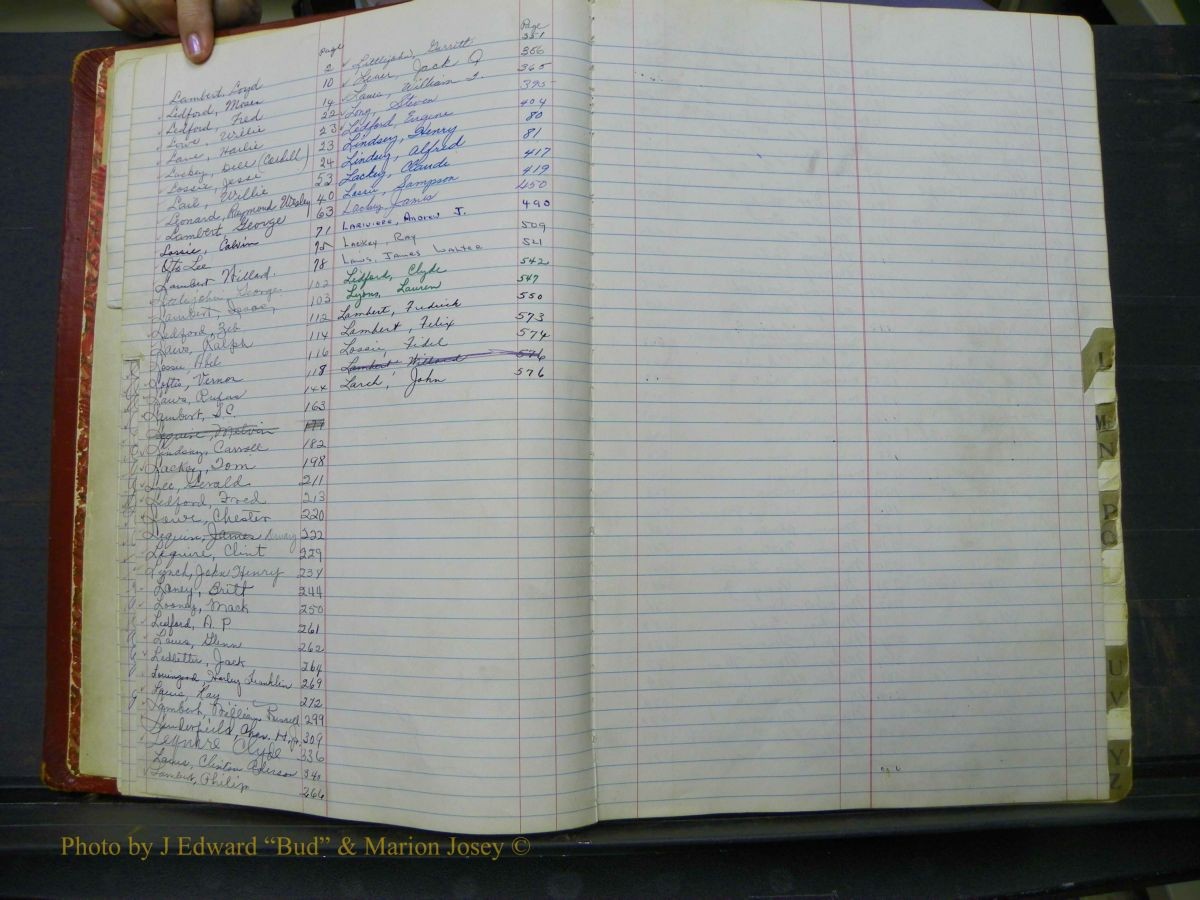 Page
Lambert, Loyd 2
Ledford, Moses 10
Ledford, Fred 14
Love, Willie 22
Lowe, Harlie 23
Luckey, Dell 23
Lossie, Jessi 24
Lail, Willie 53
Leonard, Raymond Wesley 40
Lambert, George 63
Lossie, Calvin 71
Lee 75
Lambert Willard 78
Littlejohn, George 102
Lambert, Isaac 103
Ledford, Zeb 112
Laws, Ralph 114
Lossie, Abel 116
Loftis, Vernor 118
Laws, Rufus 144
Lambert, S.C. 163
Lequire, Melvin 177
Lindsay, Carroll 182
Lackey, Tom 198
Lee, Gerald 211
Ledford, Fred 213
Lowe, Chester 220
Lequire, James 222
Lequire, Clint 229
Lynch, John Henry 234
Laney, Britt 244
Looney, Mack 250
Ledford, A. P 261
Laws, Glenn 262
Ledbetter, Jack 264
Harley Franklin 269
Laws, Ray 272
Lambert, William Russell 299
Chas. H. Jr. 309
Lequire Clyde 336
Laws, Clinton 340
Lambert, Philip 266
Page
Littlejohn, Garrett 351
Jack Q 356
Laws, William T. 365
Long, Steven 395
Ledford, Eugene 404
Lindsey, Henry 80
Lindsey, Alfred 81
Lackey, Claude 417
Lossie, Sampson 419
Lackey, James 450
Lariviere, Andrew J. 490
Lackey, Ray 509
Laws, James Walter 521
Ledford, Clyde 542
Lyons, Lauren 547
Lambert, Fredrick 550
Lambert, Felix 573
Lossie, Fidel 574
Lambert Willard 576
Larch, John 576
L
M
N
P
Q
U
V
Y
Z
Photo by J Edward “Bud” & Marion Josey ©